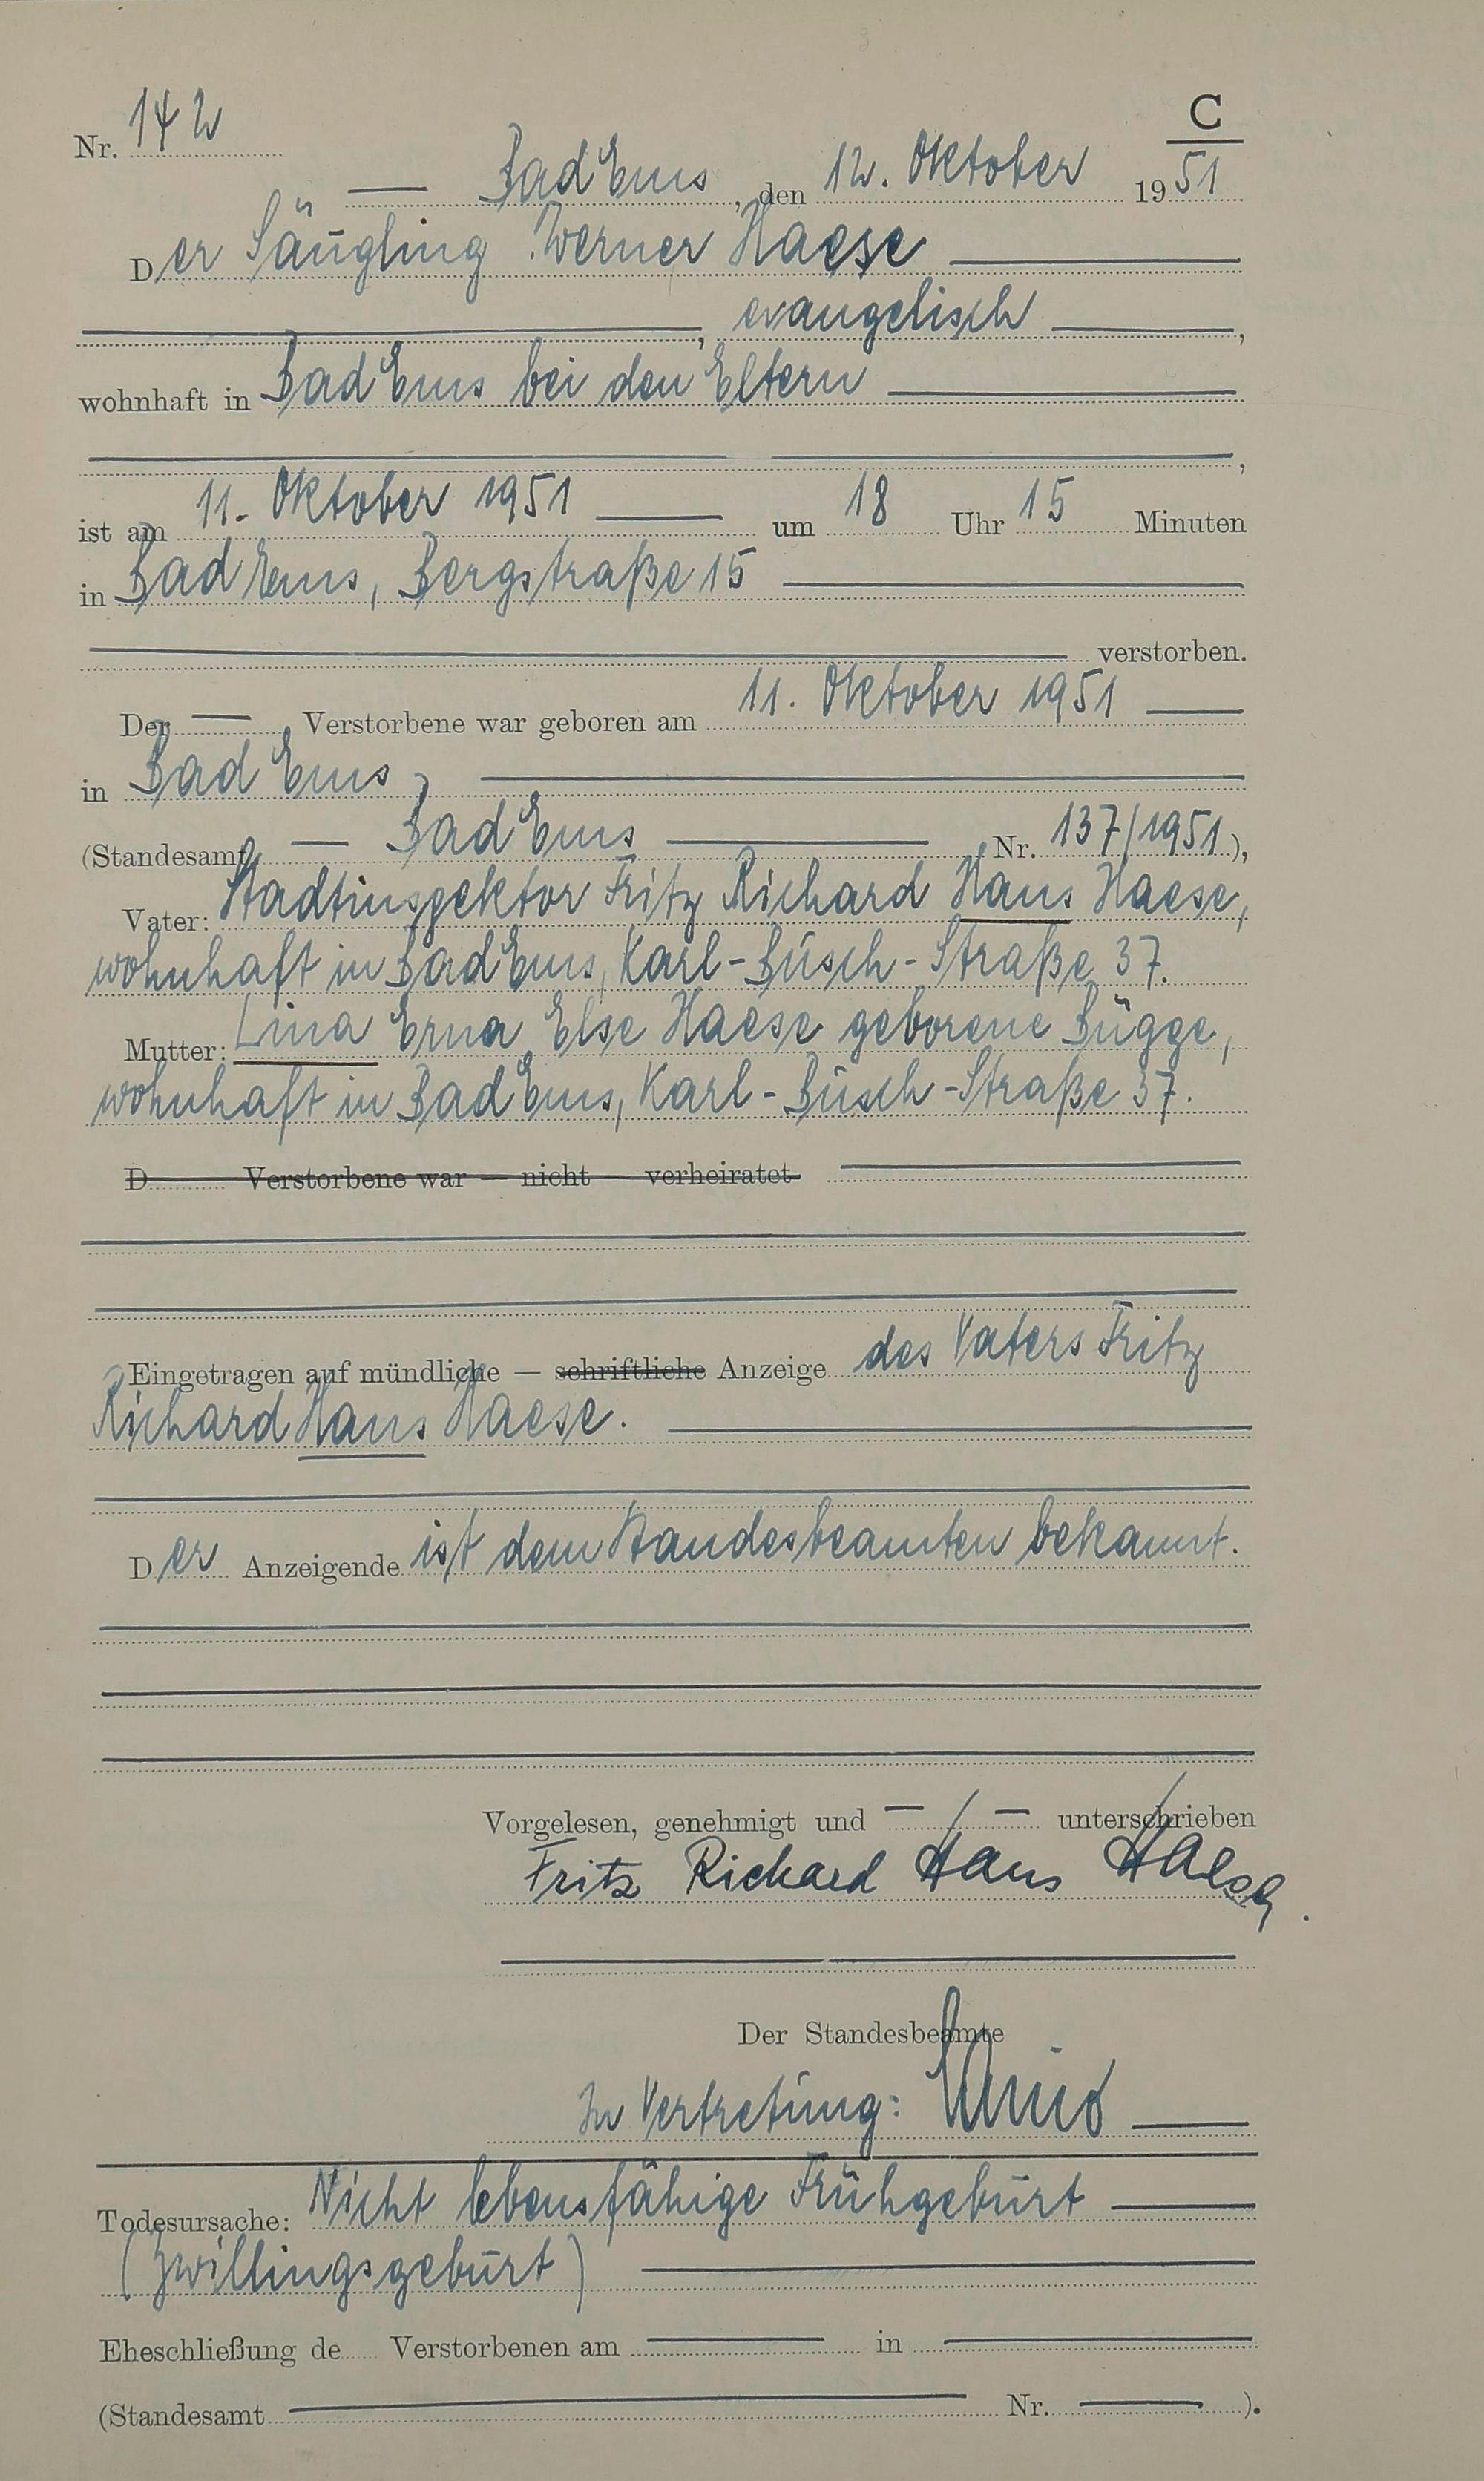 C
Nr. 142
Bad Ems, den 12. Oktober 1951
Der Säugling Werner Haese
, evangelisch,
wohnhaft in Bad Ems bei den Eltern
,
ist am 11. Oktober 1951 um 18 Uhr 15 Minuten
in Bad Ems, Bergstraße 15
verstorben.
Der Verstorbene war geboren am 11. Oktober 1951
in Bad Ems
(Standesamt Bad Ems Nr. 137/1951),
Vater: Stadtinspektor Fritz Richard Hans Haese,
wohnhaft in Bad Ems, Karl-Busch-Straße 37.
Mutter: Lina Erna Else Haese geborene Bügge,
wohnhaft in Bad Ems, Karl-Busch-Straße 37.
D Verstorbene war — nicht — verheiratet
Eingetragen auf mündliche — schriftliche Anzeige des Vaters Fritz
Richard Hans Haese.
Der Anzeigende ist dem Standesbeamten bekannt.
Vorgelesen, genehmigt und — / — unterschrieben
Fritz Richard Hans Haese.
Der Standesbeamte
In Vertretung:
Todesursache: Nicht lebensfähige Frühgeburt
(Zwillingsgeburt)
Eheschließung de Verstorbenen am in
(Standesamt Nr. ).